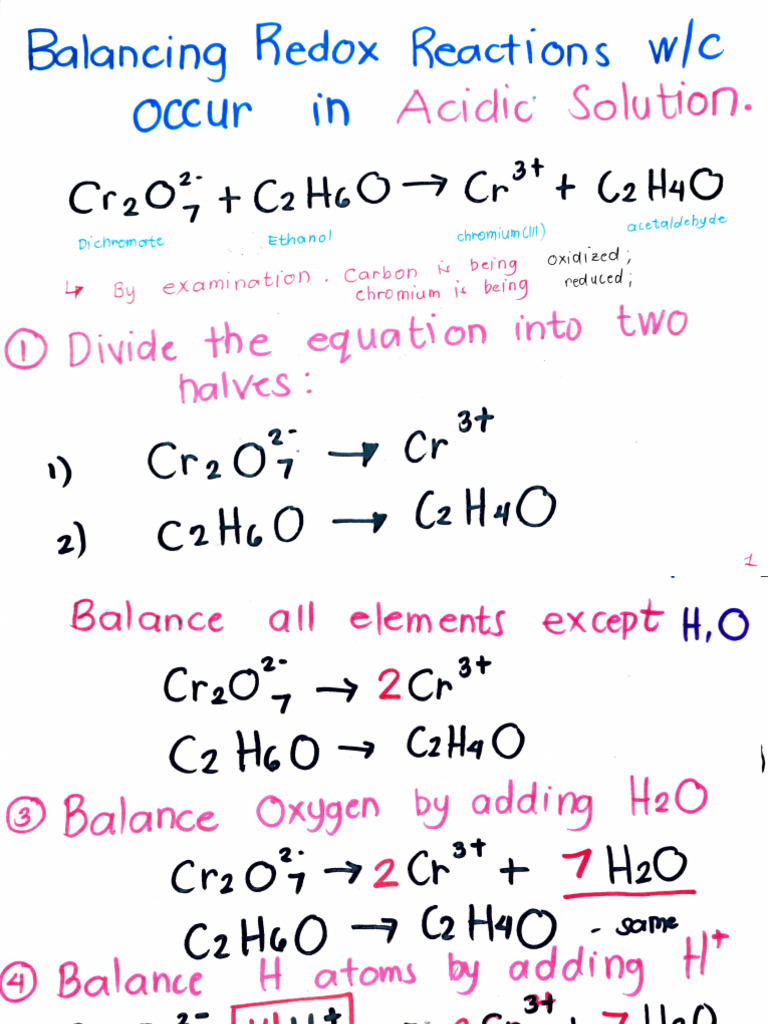 Balancing Redox Reactions w/c
occur in Acidic Solution.
Cr₂O₇²⁻ + C₂H₆O → Cr³⁺ + C₂H₄O
Dichromate Ethanol chromium(III) acetaldehyde
↳ By examination. Carbon is being oxidized;
chromium is being reduced;
① Divide the equation into two
halves:
1) Cr₂O₇²⁻ → Cr³⁺
2) C₂H₆O → C₂H₄O
1
Balance all elements except H,O
Cr₂O₇²⁻ → 2Cr³⁺
C₂H₆O → C₂H₄O
③ Balance Oxygen by adding H₂O
Cr₂O₇²⁻ → 2Cr³⁺ + 7H₂O
C₂H₆O → C₂H₄O - same
④ Balance H atoms by adding H⁺